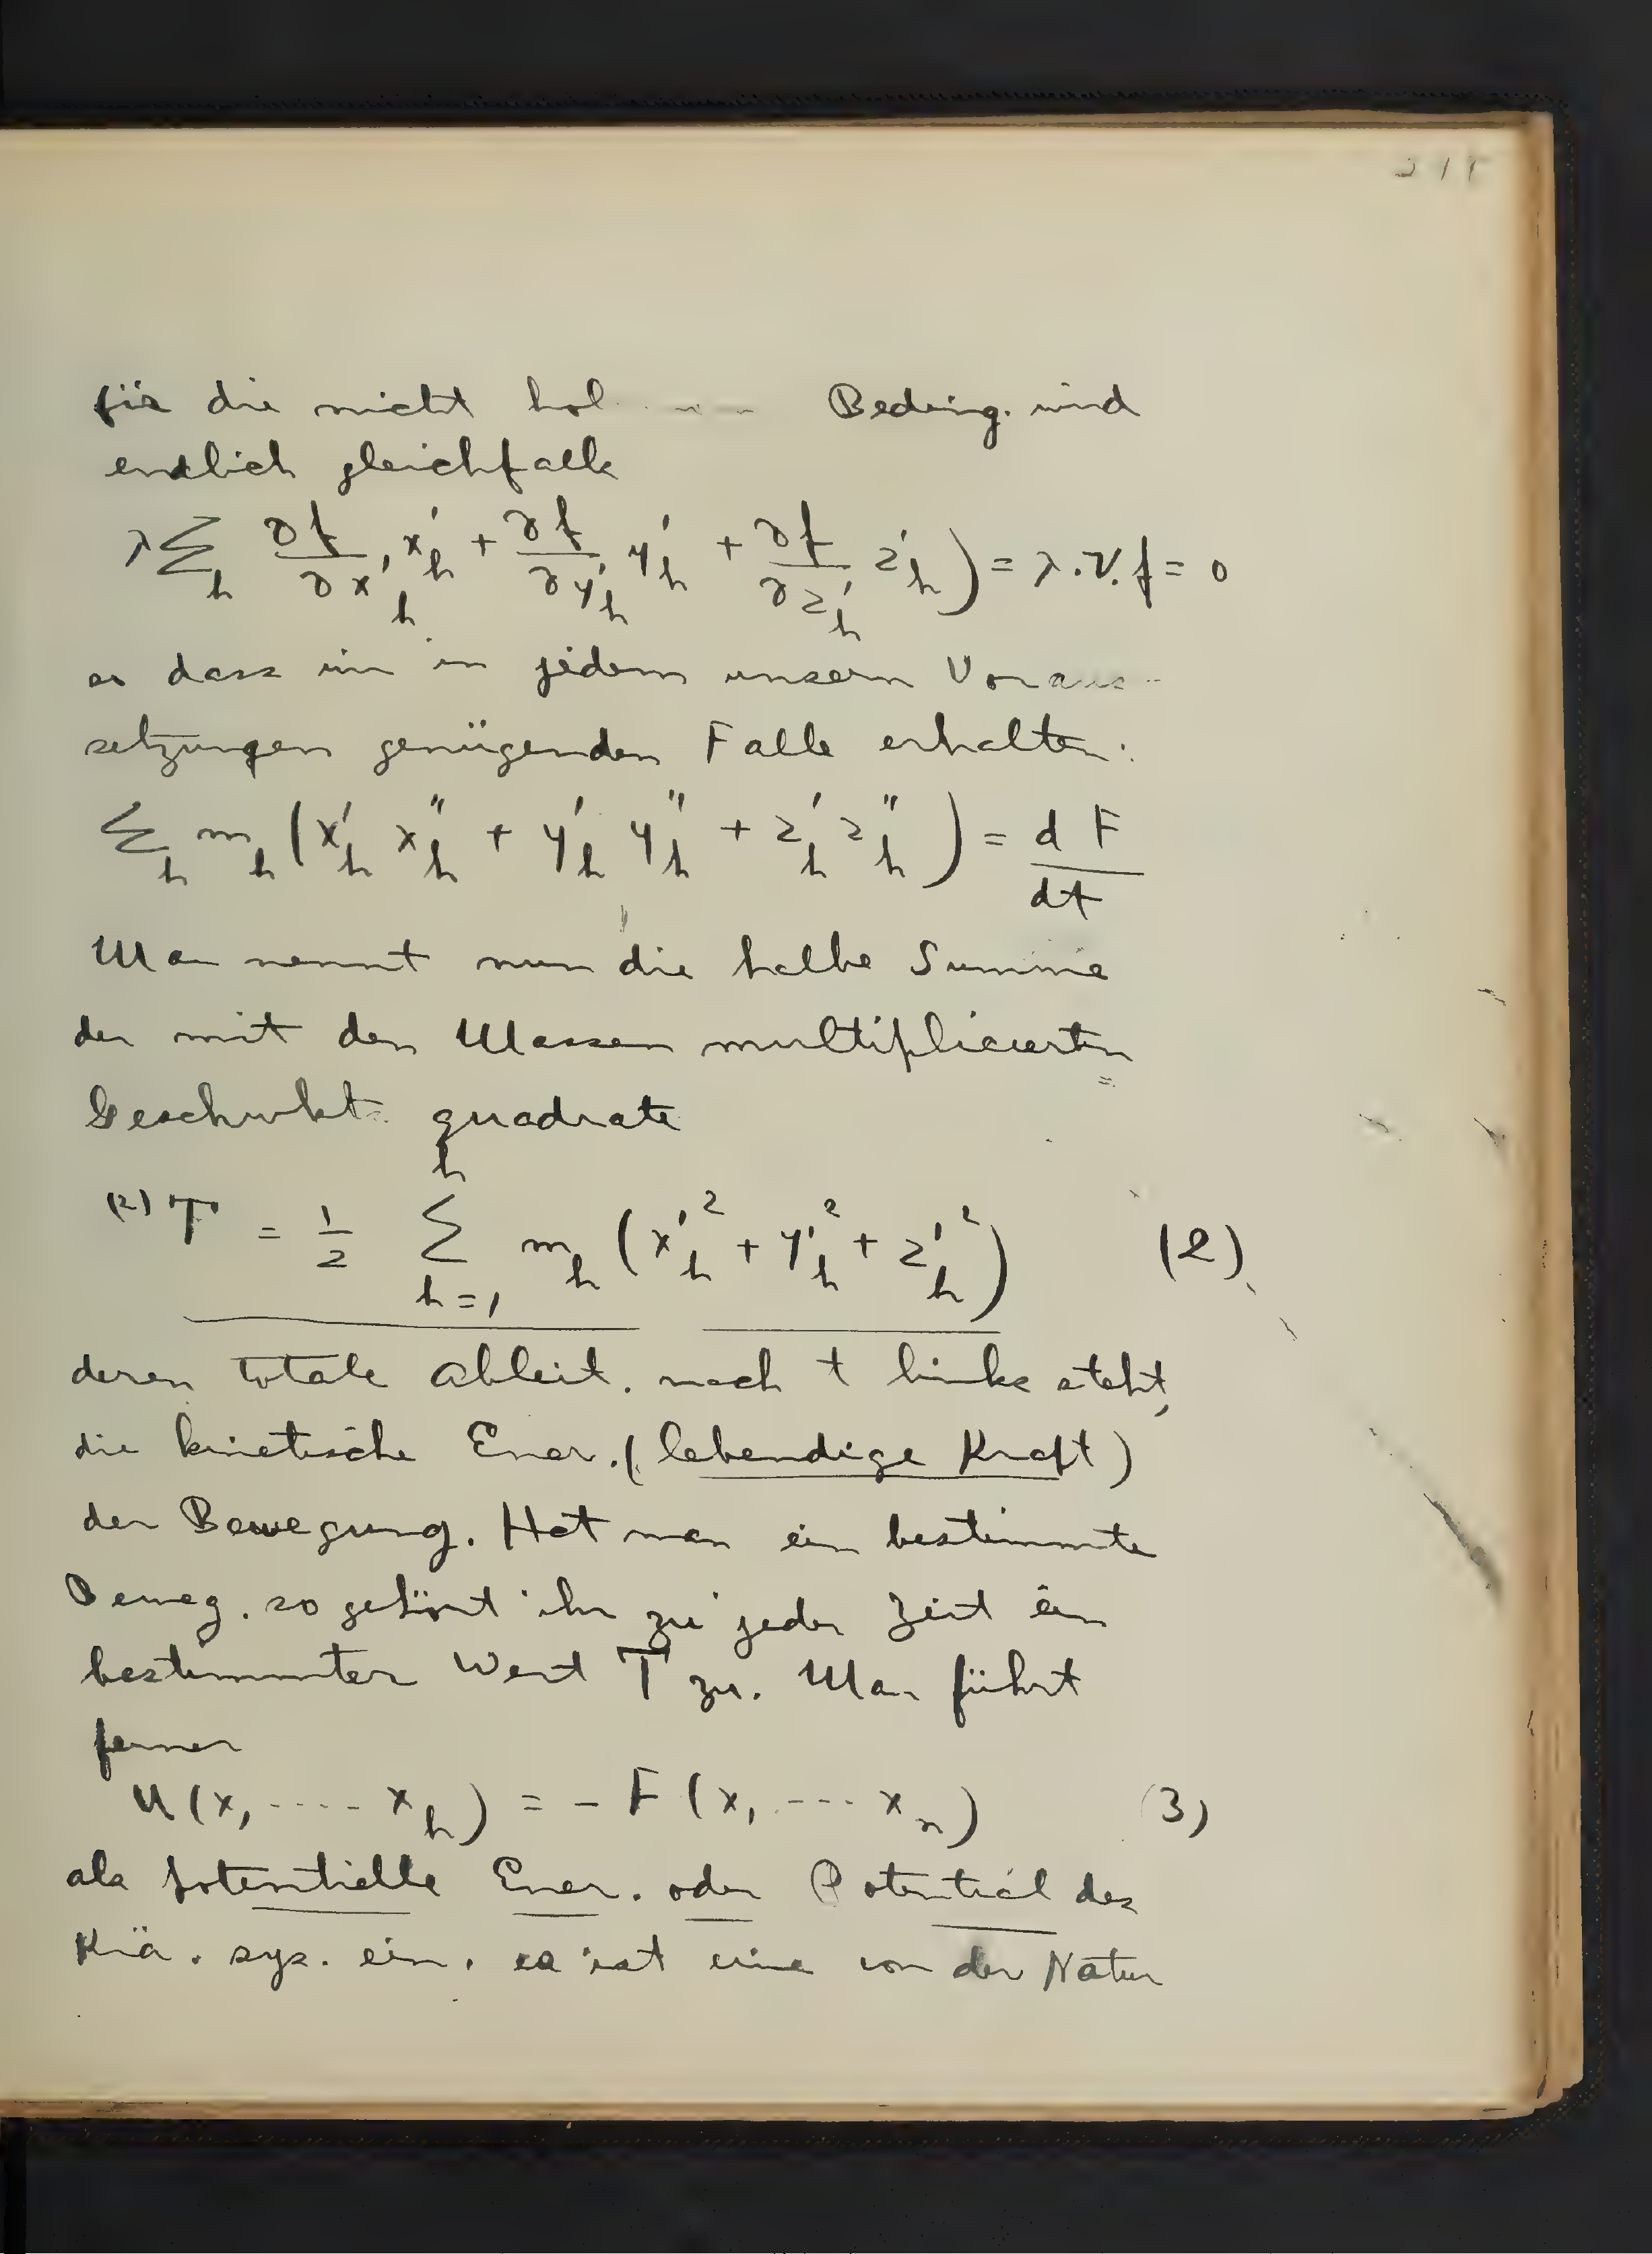 für die nicht hol --- Beding. wird
endlich gleichfalls
λ∑_h ∂f/∂x'_h x'_h + ∂f/∂y'_h y'_h + ∂f/∂z'_h z'_h) = λ.ν.f = 0
so dass wir in jedem unsern Voraus-
setzungen genügenden Falle erhalten:
∑_h m_h (x'_h x''_h + y'_h y''_h + z'_h z''_h) = dF/dt
Man nennt nun die halbe Summe
der mit den Massen multiplicierten
Geschwkts quadrate
(2) T = 1/2 ∑_{h=1}^h m_h (x'_h² + y'_h² + z'_h²) (2)
deren totale Ableit. nach t links steht,
die kinetische Ener. (lebendige Kraft)
der Bewegung. Hat man ein bestimmte
Beweg. so gehört ihr zu jeder Zeit ein
bestimmter Wert T zu. Man führt
ferner
U(x, ---- x_h) = - F(x, --- x_n) (3)
als potentielle Ener. oder Potential des
Krä. sys. ein. es ist eine von der Natur